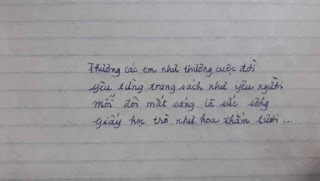 Thương các em như thương cuộc đời
Yêu từng trang sách như yêu người
Mỗi đôi mắt sáng là sức sống
Giấy học trò như hoa thắm tươi...